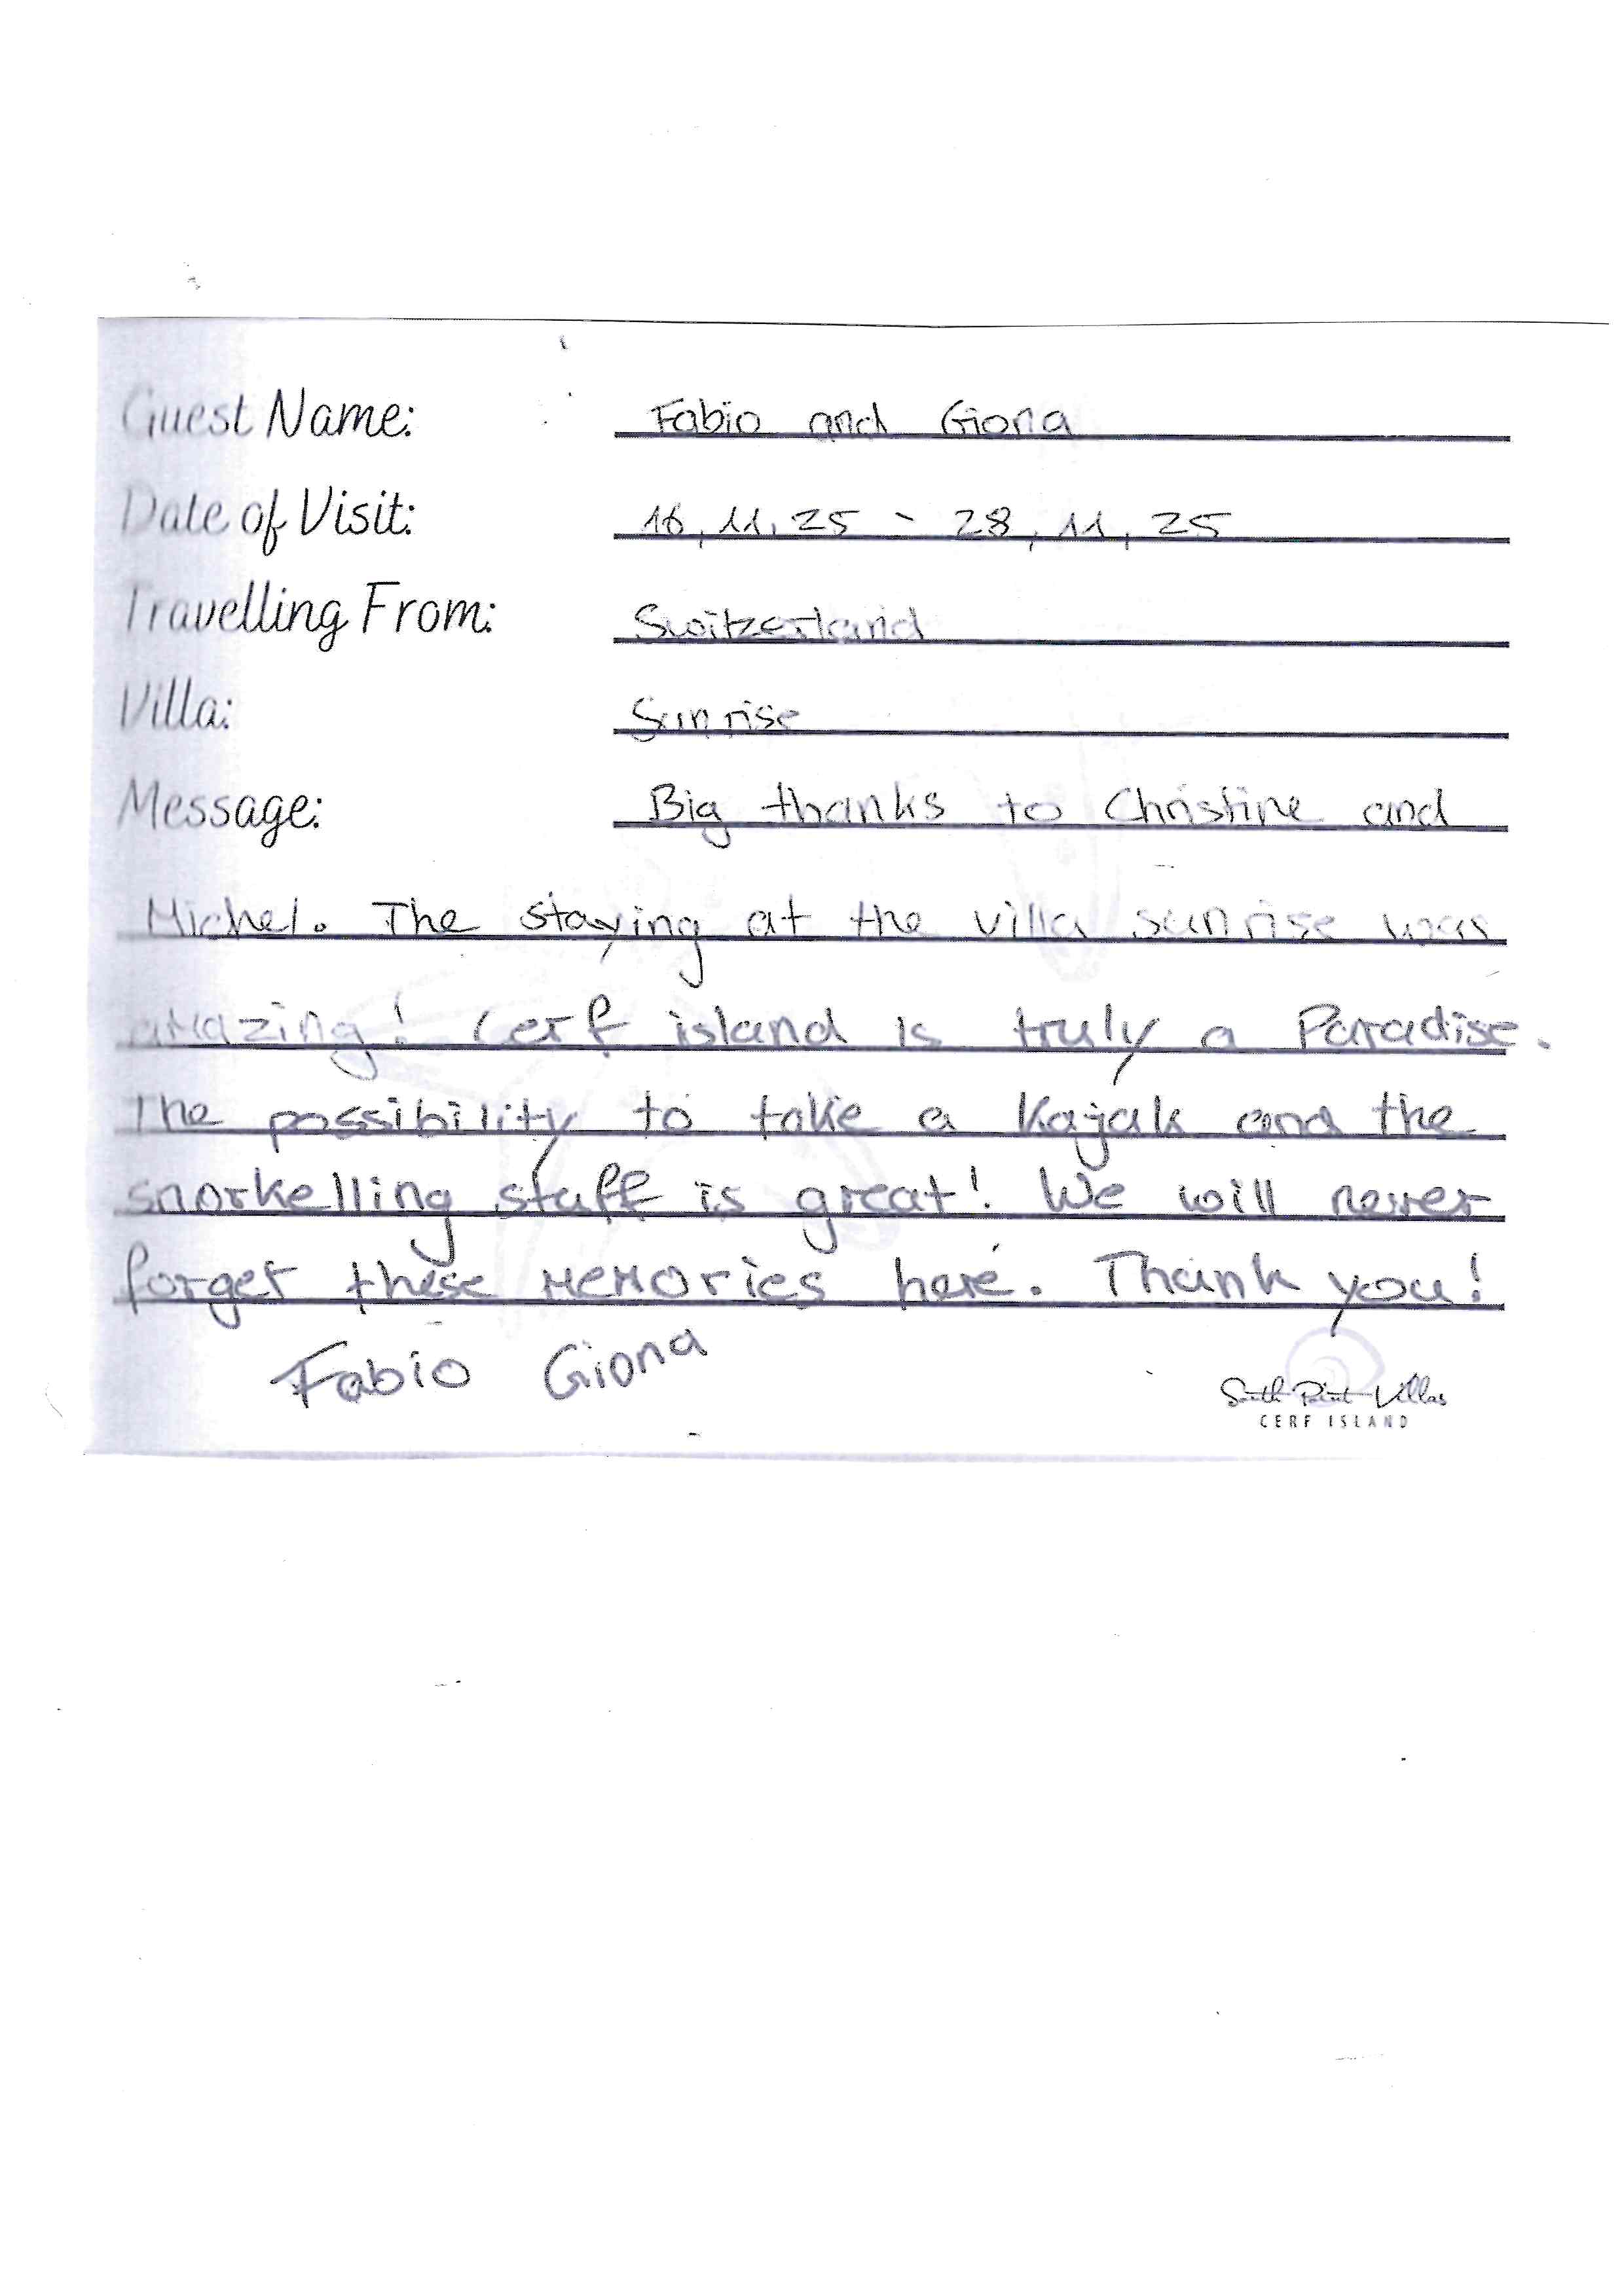 Guest Name: Fabio and Giona
Date of Visit: 16.11.25 - 28.11.25
Travelling From: Switzerland
Villa: Sunrise
Message: Big thanks to Christine and
Michel. The staying at the villa sunrise was
amazing! Cerf island is truly a Paradise.
The possibility to take a Kajak and the
snorkelling staff is great! We will never
forget these memories here. Thank you!
Fabio Giona
South Point Villas
CERF ISLAND